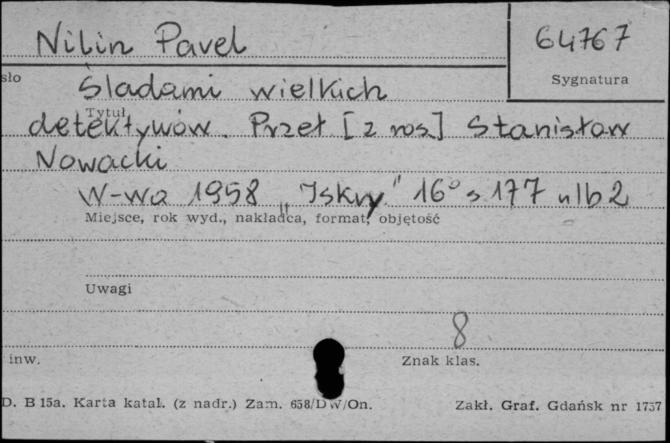 Nilin Pavel
64767
sło
Sygnatura
Śladami wielkich
Tytuł
detektywów. Przeł [z ros] Stanisław
Nowacki
W-wa 1958 „Iskry" 16° s 177 nlb 2
Miejsce, rok wyd., nakładca, format, objętość
Uwagi
8
inw.
Znak klas.
D. B 15a. Karta katal. (z nadr.) Zam. 658/DW/On.
Zakł. Graf. Gdańsk nr 1757